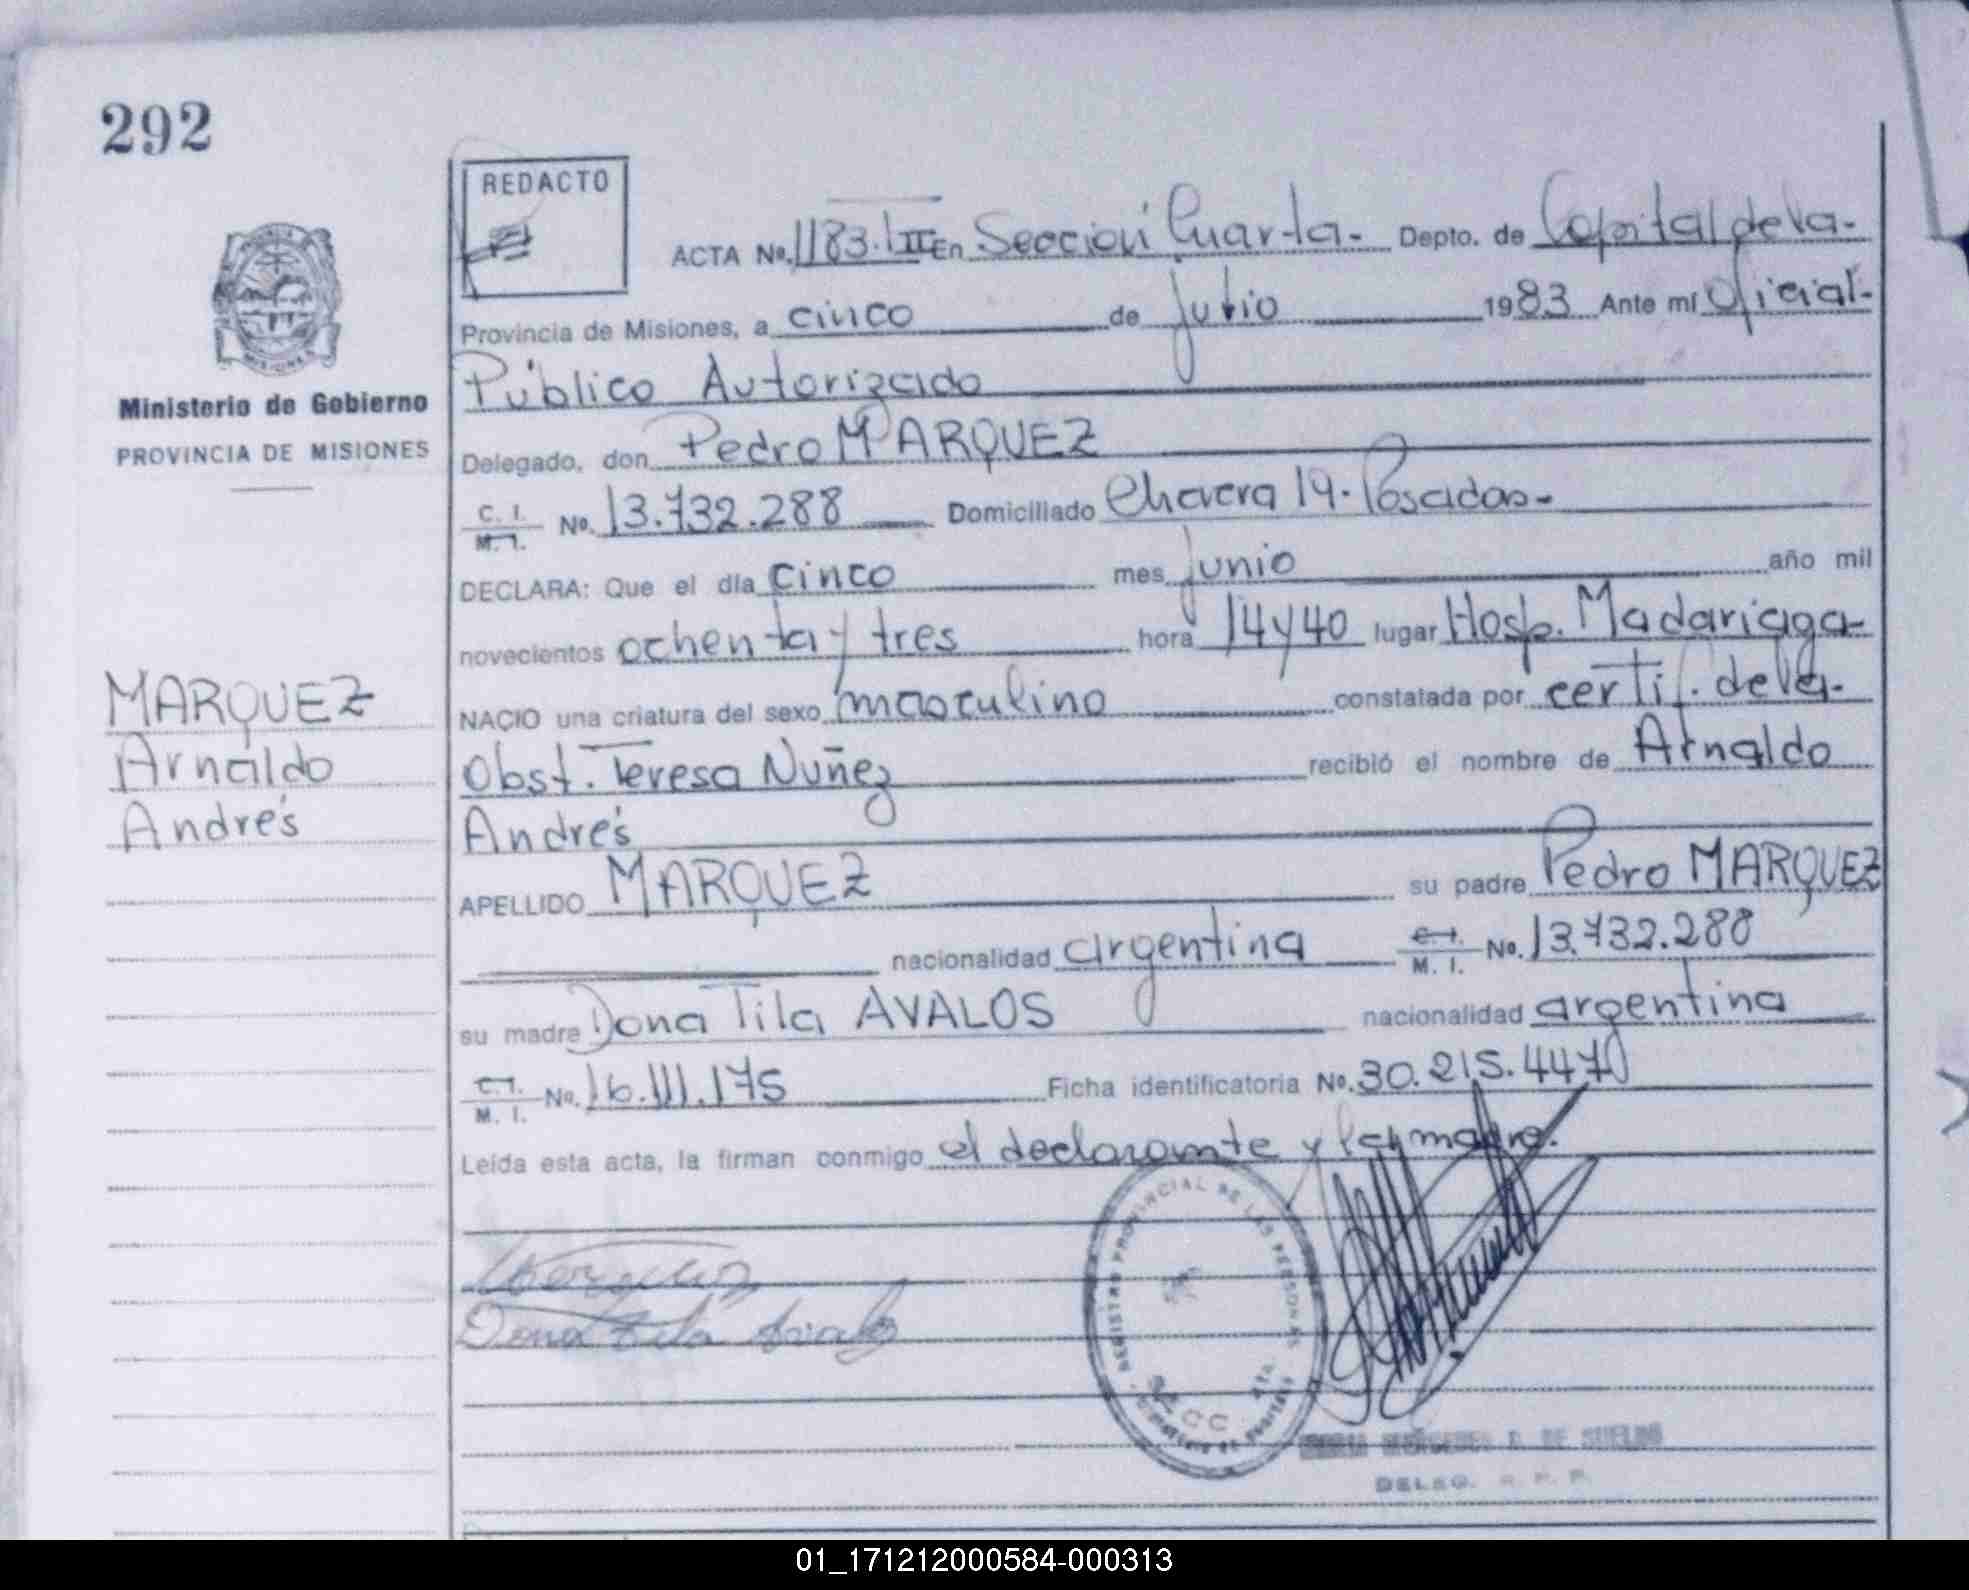 292
REDACTO
ACTA No. 1183. III En Sección Cuarta.- Depto. de Capital de la.-
Provincia de Misiones, a cinco de julio 1983 Ante mí Oficial.-
Público Autorizado
Ministerio de Gobierno
PROVINCIA DE MISIONES
Delegado, don Pedro MARQUEZ
C. I. M. I. No. 13.732.288 Domiciliado Chacra 19. Posadas.-
DECLARA: Que el día cinco mes junio año mil
novecientos ochenta y tres hora 14 y 40 lugar Hosp. Madariaga-
NACIO una criatura del sexo masculino constatada por certif. de la.-
Obst. Teresa Nuñez recibió el nombre de Arnaldo
Andrés
MARQUEZ
Arnaldo
Andrés
APELLIDO MARQUEZ su padre Pedro MARQUEZ
nacionalidad argentina C. I. M. I. No. 13.732.288
su madre Dona Tila AVALOS nacionalidad argentina
C. I. M. I. No. 16.111.175 Ficha identificatoria No. 30.215.447
Leída esta acta, la firman conmigo el declarante y la madre.
Dona Tila Avalos
REGISTRO PROVINCIAL DE LAS PERSONAS
SECC 4TA.
DE SUELDO
DELEG. R. P. P.
01_171212000584-000313